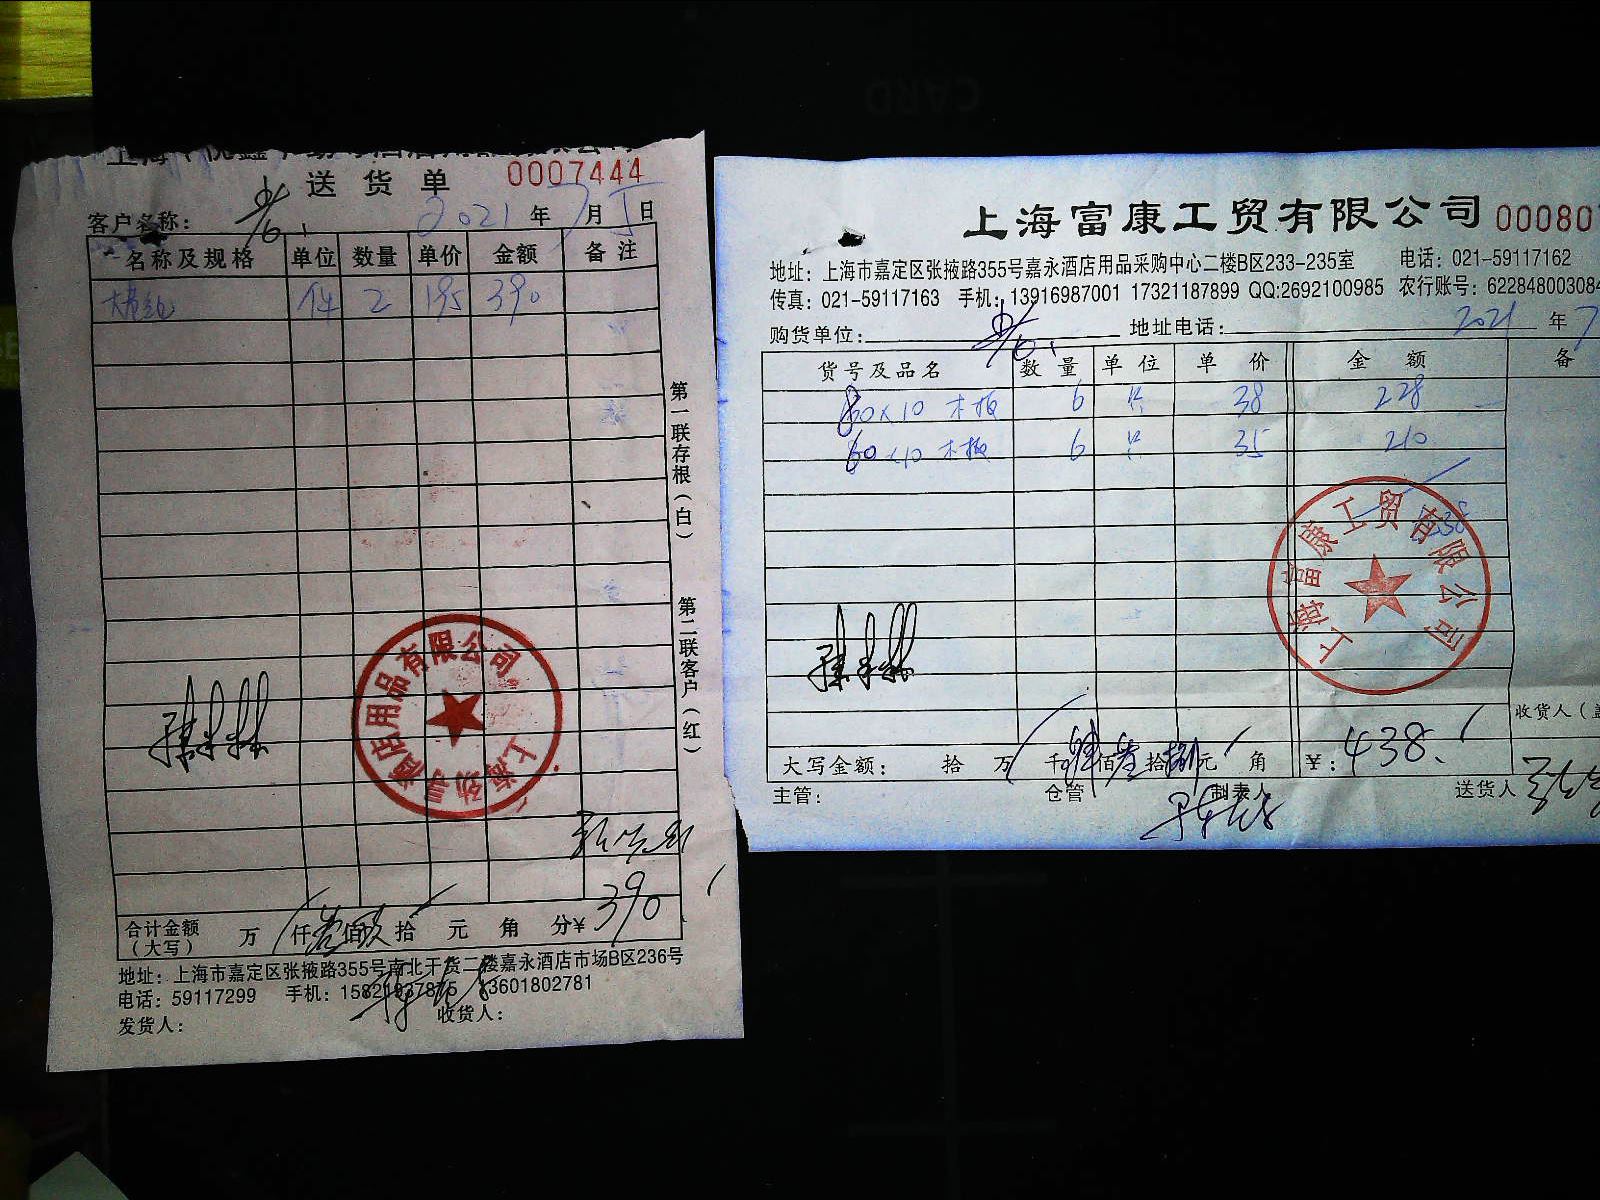 CARD
送货单 0007444
客户名称： 2021年7月5日
名称及规格 单位 数量 单价 金额 备注
2 195 390
第一联存根（白） 第二联客户（红）
酒店用品有限公司
390
合计金额（大写） 万 仟 佰 拾 元 角 分¥
地址：上海市嘉定区张掖路355号南北干货二楼嘉永酒店市场B区236号
电话：59117299 手机： 13601802781
发货人： 收货人：
上海富康工贸有限公司 00080
地址：上海市嘉定区张掖路355号嘉永酒店用品采购中心二楼B区233-235室 电话：021-59117162
传真：021-59117163 手机：13916987001 17321187899 QQ:2692100985 农行账号：622848003084
购货单位： 地址电话： 2021年7
货号及品名 数量 单位 单价 金额 备
80×10 木板 6 只 38 228
60×10 木板 6 只 35 210
438
上海富康工贸有限公司
收货人（盖
大写金额： 拾 万 千 佰叁拾捌元 角 ¥：438.
主管： 仓管 制表人 送货人